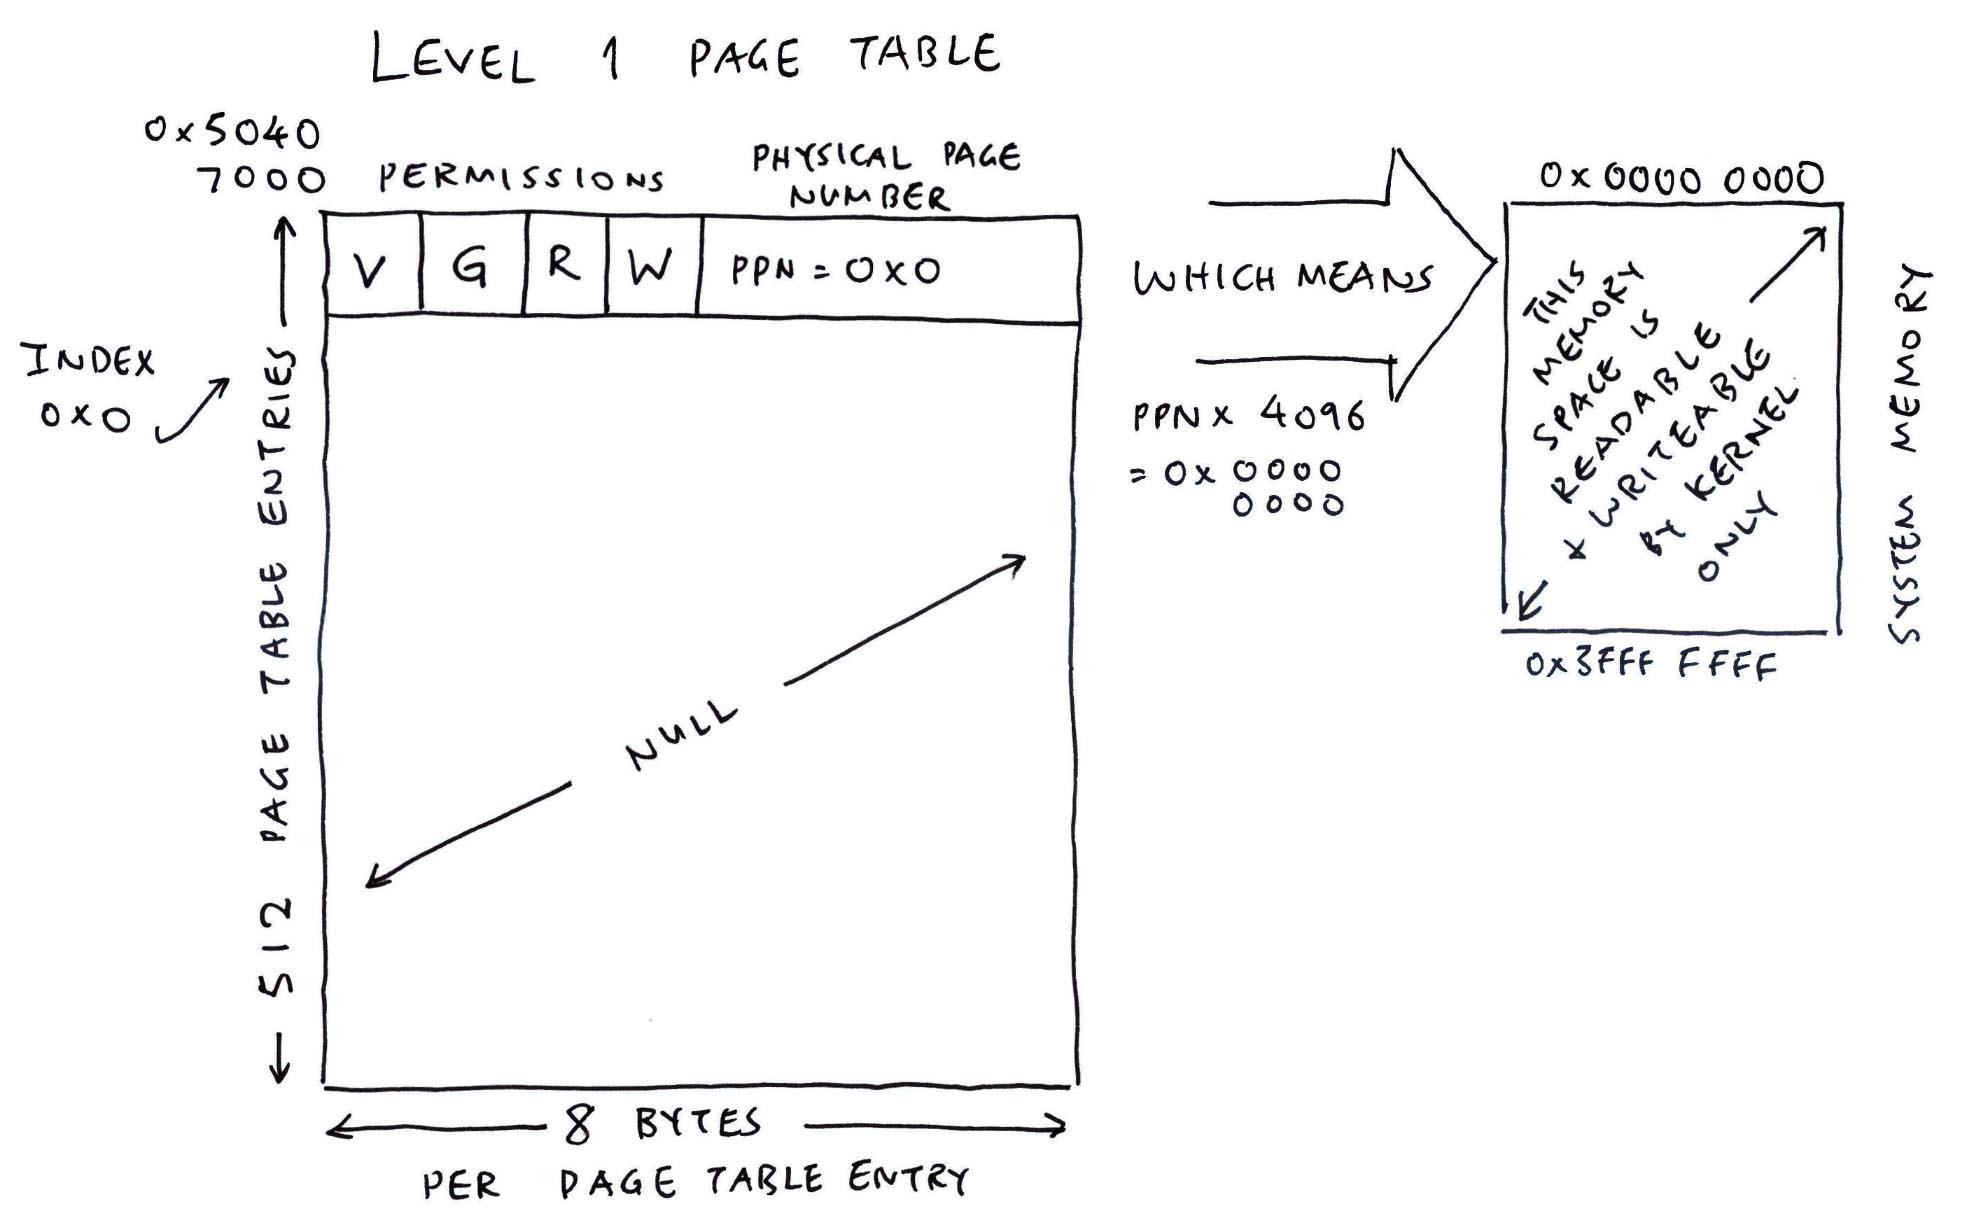 LEVEL 1 PAGE TABLE
0x5040
7000
PERMISSIONS
PHYSICAL PAGE
NUMBER
V G R W PPN = 0X0
INDEX
0X0
← 512 PAGE TABLE ENTRIES →
NULL
8 BYTES
PER PAGE TABLE ENTRY
WHICH MEANS
PPN X 4096
= 0x 0000
0000
0x 0000 0000
THIS
MEMORY
SPACE IS
READABLE
& WRITEABLE
BY KERNEL
ONLY
0x3FFF FFFF
SYSTEM MEMORY